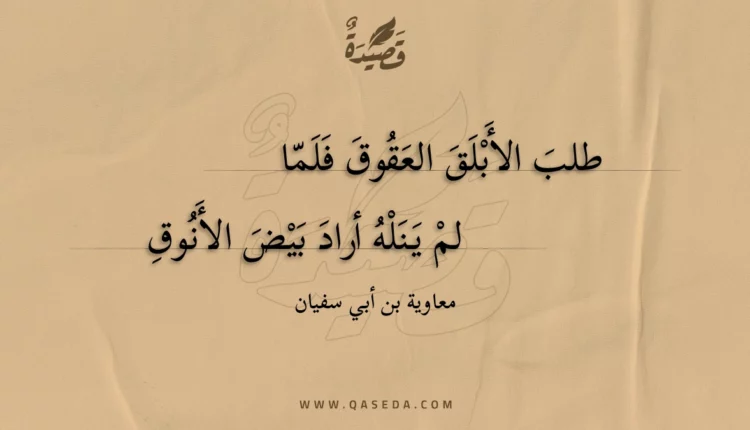 قَصِيْدَةٌ
طلبَ الأَبْلَقَ العَقُوقَ فَلَمّا
لمْ يَنَلْهُ أرادَ بَيْضَ الأَنُوقِ
معاوية بن أبي سفيان
WWW.QASEDA.COM